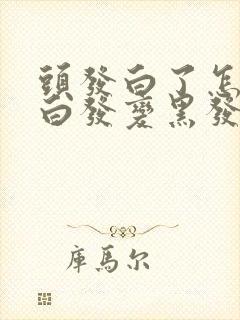 頭發白了怎
白發變黑發
庫馬尔